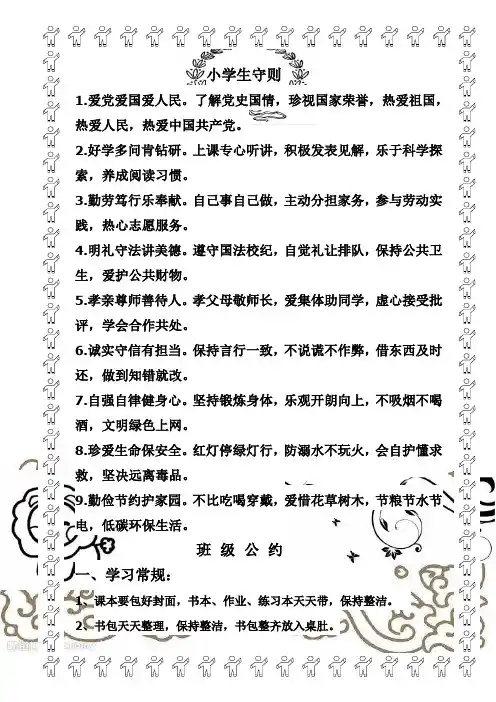 小学生守则
1.爱党爱国爱人民。了解党史国情，珍视国家荣誉，热爱祖国，
热爱人民，热爱中国共产党。
2.好学多问肯钻研。上课专心听讲，积极发表见解，乐于科学探
索，养成阅读习惯。
3.勤劳笃行乐奉献。自己事自己做，主动分担家务，参与劳动实
践，热心志愿服务。
4.明礼守法讲美德。遵守国法校纪，自觉礼让排队，保持公共卫
生，爱护公共财物。
5.孝亲尊师善待人。孝父母敬师长，爱集体助同学，虚心接受批
评，学会合作共处。
6.诚实守信有担当。保持言行一致，不说谎不作弊，借东西及时
还，做到知错就改。
7.自强自律健身心。坚持锻炼身体，乐观开朗向上，不吸烟不喝
酒，文明绿色上网。
8.珍爱生命保安全。红灯停绿灯行，防溺水不玩火，会自护懂求
救，坚决远离毒品。
9.勤俭节约护家园。不比吃喝穿戴，爱惜花草树木，节粮节水节
电，低碳环保生活。
班 级 公 约
一、学习常规：
1、课本要包好封面，书本、作业、练习本天天带，保持整洁。
2、书包天天整理，保持整洁，书包整齐放入桌肚。